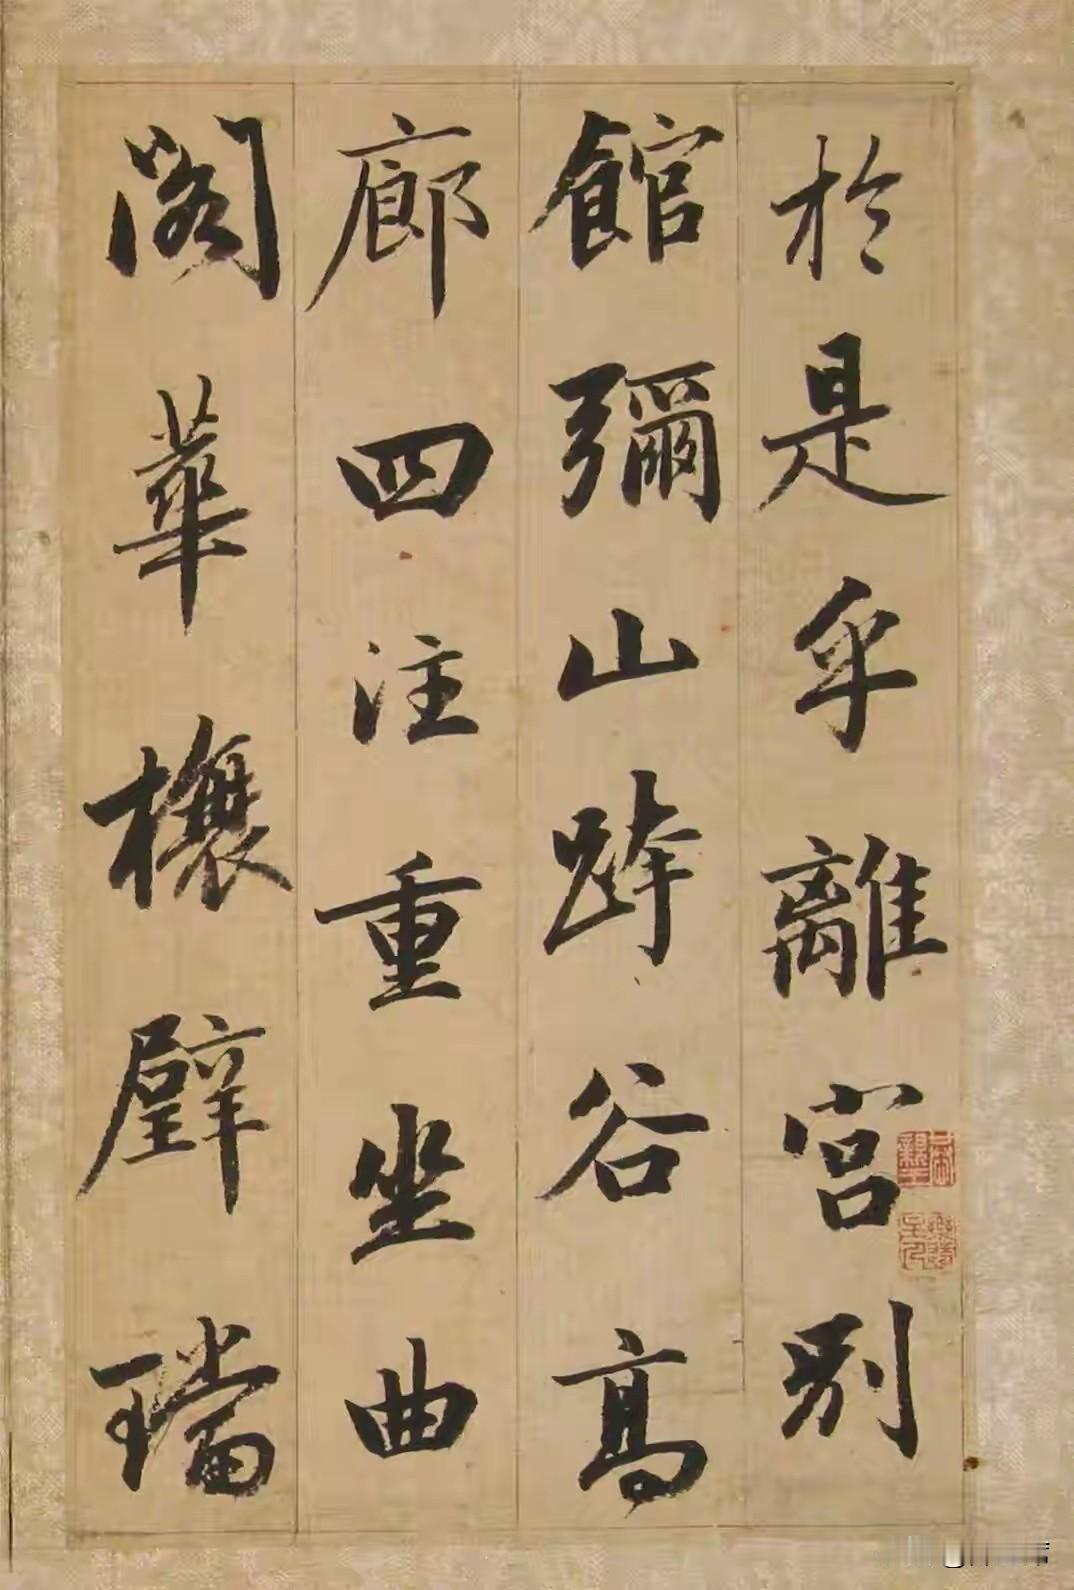 於是乎離宮別
館彌山跨谷高
廊四注重坐曲
閣華榱璧璫